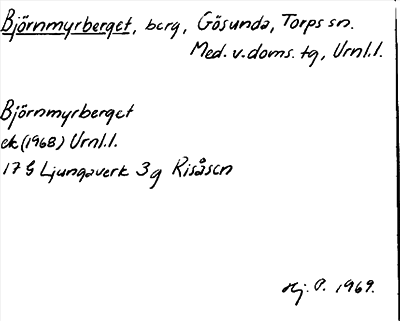 Björnmyrberget, berg, Gösunda, Torps sn.
Med. v. doms. tg, Urnl.l.
Björnmyrberget
ek (1968) Urnl.l.
17 G Ljungaverk 3g Risåsen
Hj. P. 1969.